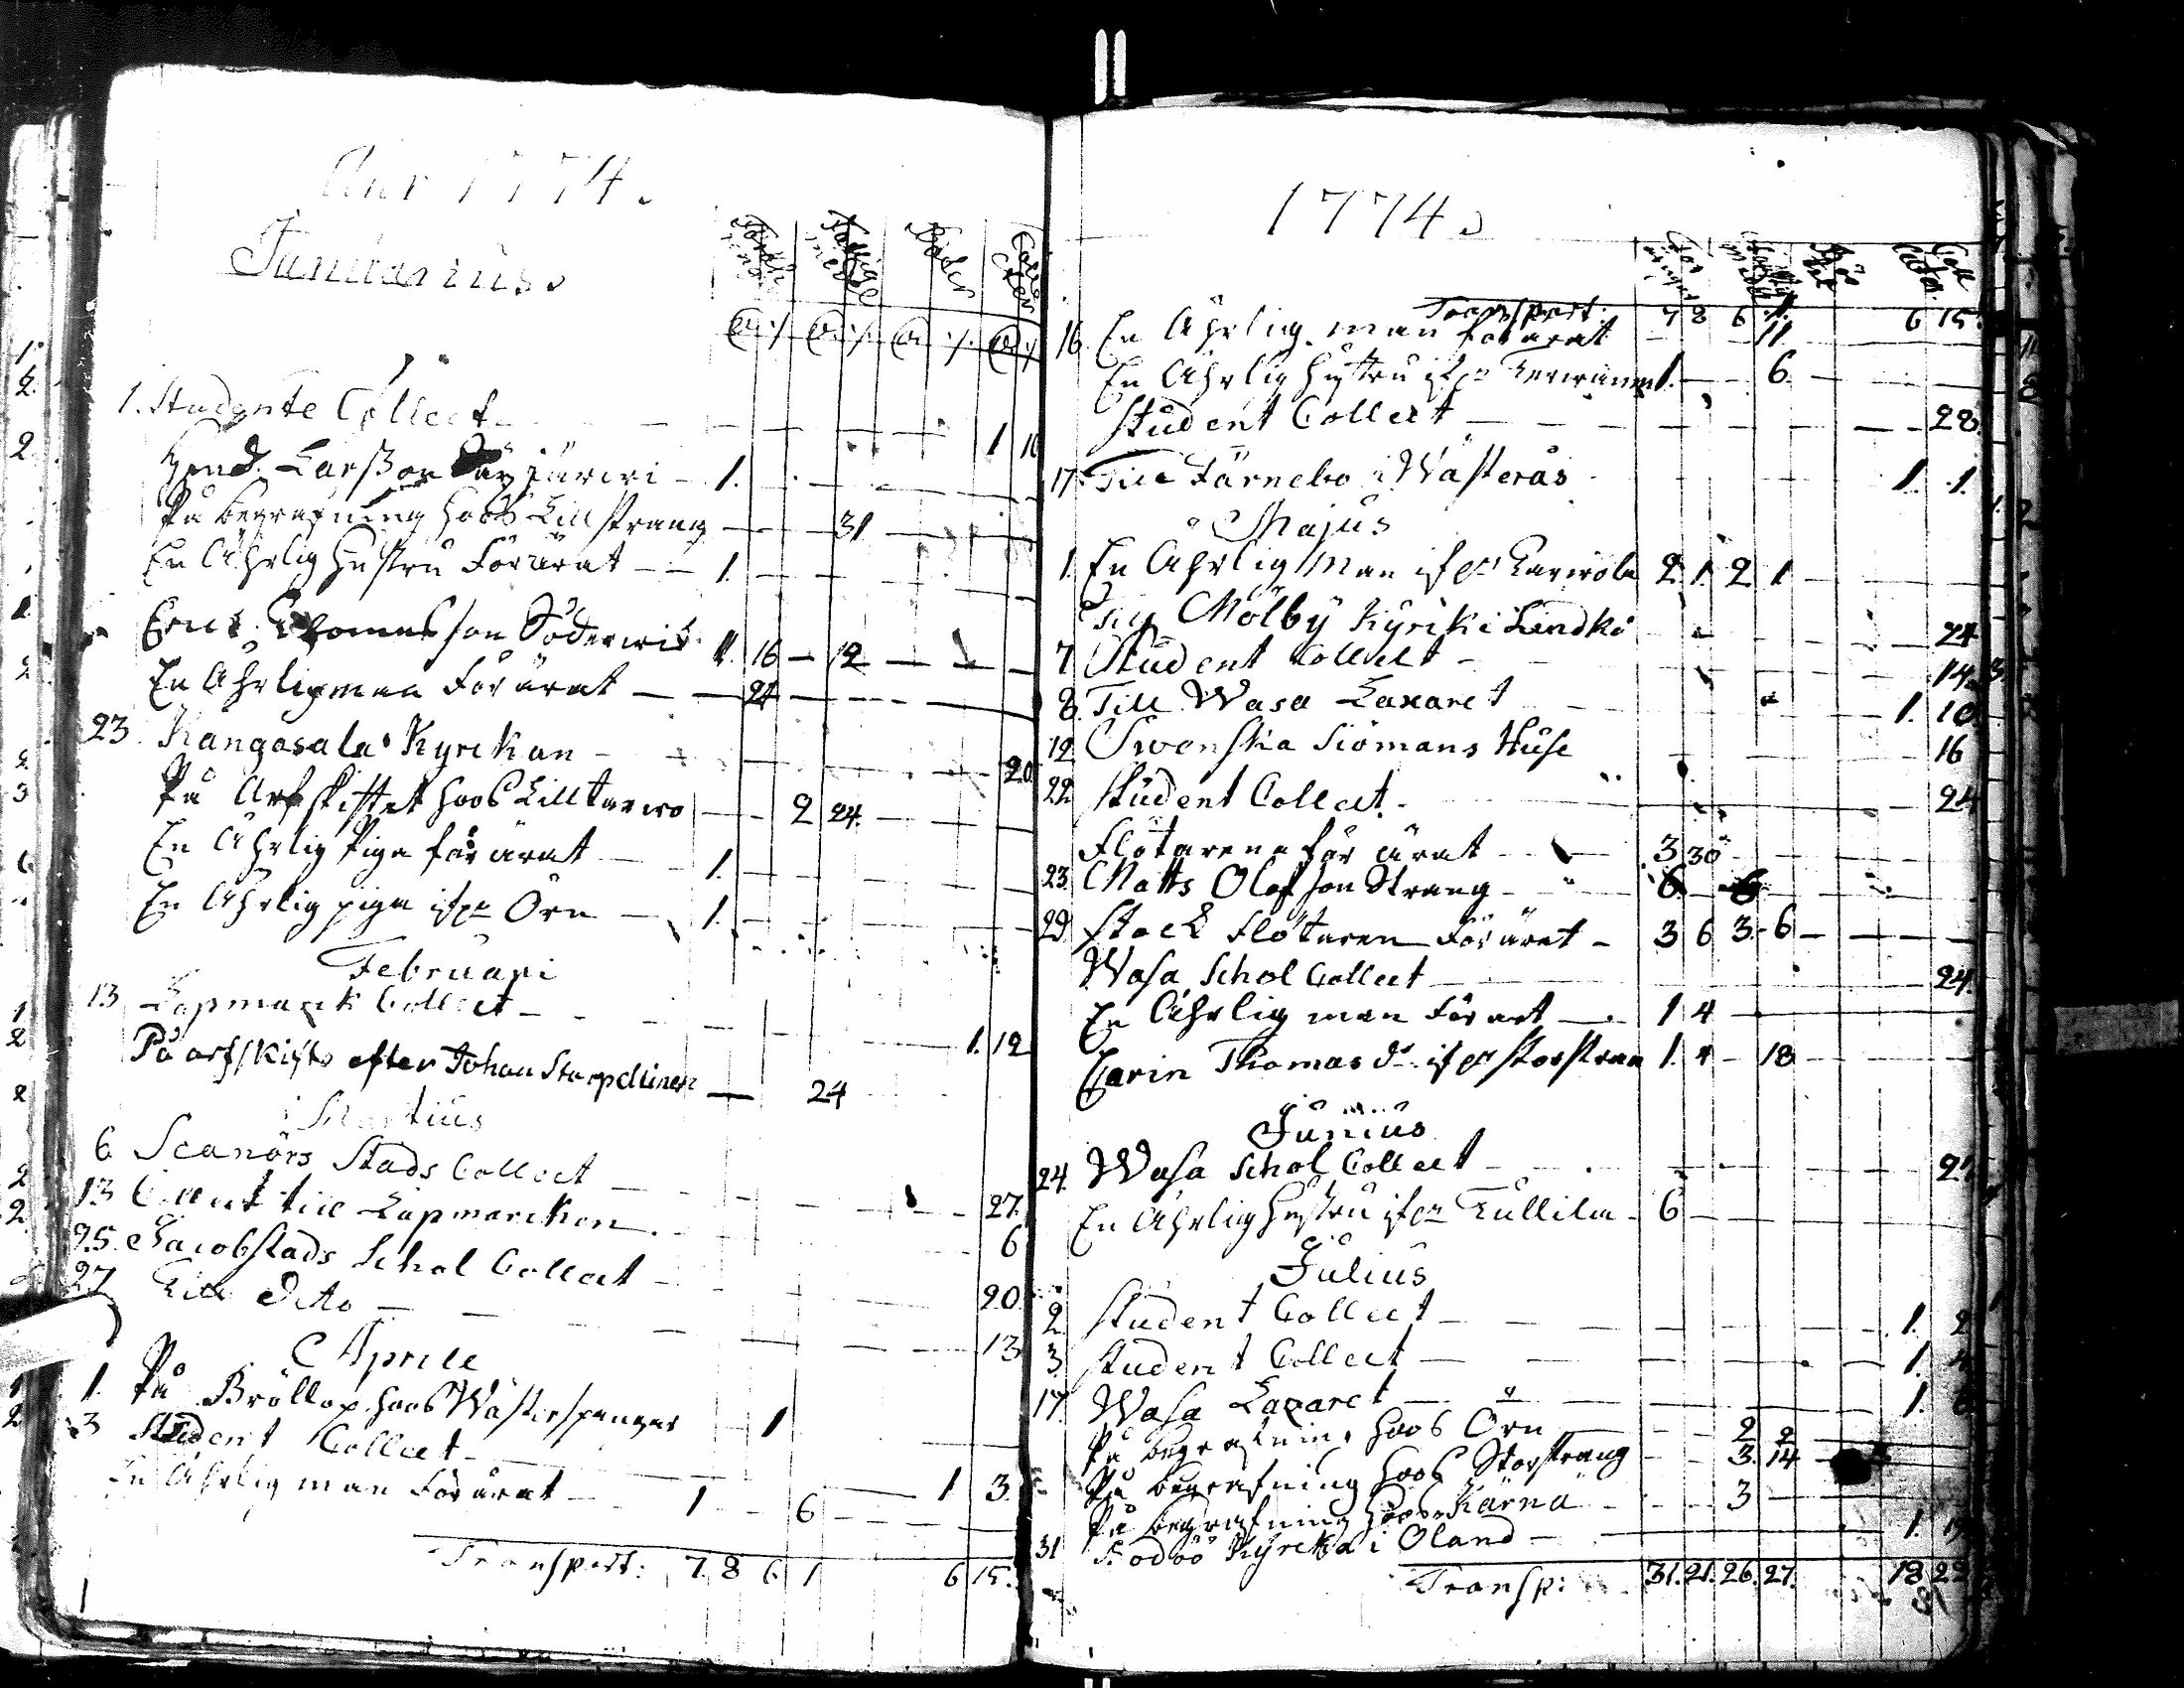 Ao 1774.
Januarius.
1. Studente Collect - 1 16
Hend. Larsson järwi - 1.
På begrafning hoos Lillstrang - 31
En Ährlig hustru Förärat - 1.
Eric Thomasson Söderwik 1. 16 - 12
En Ährlig man Förärat - 24
23 Kangasala Kyrckan - 20
På Arfskiftet hoos Lilltarwo - 2 24.
En Ährlig Piga förärat - 1.
En Ährlig piga ifrån Örn - 1.
Februari
13 Lapmarck Collect - 1. 12
På arfskifte efter Johan Starpellinen - 24
Martius
6 Scanörs Stads Collect - 27.
13 Collect till Lapmarcken. 6
25. Jacobstads Schol Collect - 20
27 Till Dito - 13
Aprile
1. På Bröllop hoos Wästerspangar - 1
3 Student Collect - 1 3
En Ährlig man Förärat - 1 - 6
Transport: 7. 8 6. 1 6 15.
1774.
Transport: 7 8 6 1. 6 15.
16 En Ährlig man förärat - 11
En Ährlig hustru ifrån 1. - 6.
Student Collect - 28.
17. Till Färnebo i Wästerås 1. 1.
Majus
1. En Ährlig Man ifrån Karwola 2. 1. 2 1
Till Mölby Kyrcki Lindkö - 24
7 Student Collect - 14
8. Till Wasa Lazaret - 1. 10.
12 Swenska Siömans Huse 16
22 Student Collect. 24
Flötarena för ärat - 3 30
23. Matts Olofson Strang - 6. - 6
29. Stock Flötaren Förärat - 3 6 3. 6
Wasa Schol Collect - 24.
En Ährlig man Förärt - 1 4
Carin Thomas dr. ifrån Storstran 1. 4 - 18
Junius
24. Wasa Schol Collect - 21
En Ährlig hustru ifrån Kullila - 6
Julius
2. Student Collect - 1. 2
3. Student Collect - 1. 4
17. Wasa Lazaret - 1. 6
På begrafning hoos Örn - 2 2
På begrafning hoos Storstrang - 3. 14
På begrafning hoos Kärnä - 3
31 Bodöö Kyrcka i Oland - 1. 19
Transp: 31. 21. 26. 27. 18 22